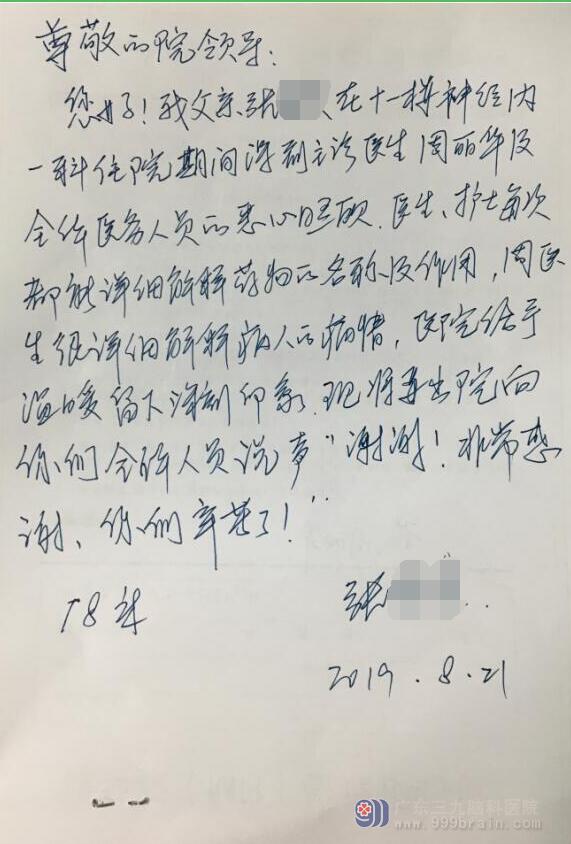 尊敬的院领导：
您好！我父亲张 在十一楼神经内
一科住院期间得到主诊医生周丽华及
全体医务人员的悉心照顾．医生、护士每次
都能详细解释药物的名称及作用，周医
生很详细解释病人的病情，医院给予
温暖留下深刻印象．现将要出院向
你们全体人员说声“谢谢！非常感
谢、你们辛苦了！”
18床
张
2019.8.21
广东三九脑科医院
www.999brain.com